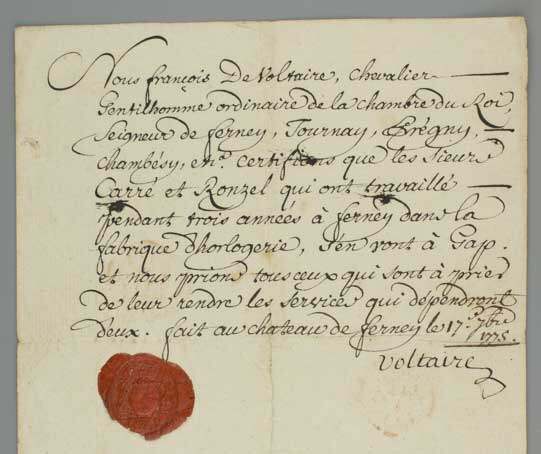 Nous françois De Voltaire, Chevalier
Gentilhomme ordinaire de la chambre du Roi,
Seigneur de ferney, Tournay, Prégny,
Chambésy, et certifions que les Sieurs
Carré et Ronzel qui ont travaillé
pendant trois années à ferney dans la
fabrique d'horlogerie, s'en vont à Gap.
et nous prions tous ceux qui sont à prier
de leur rendre les services qui dépendront
d'eux. fait au chateau de ferney le 17e 7bre
1775.
Voltaire